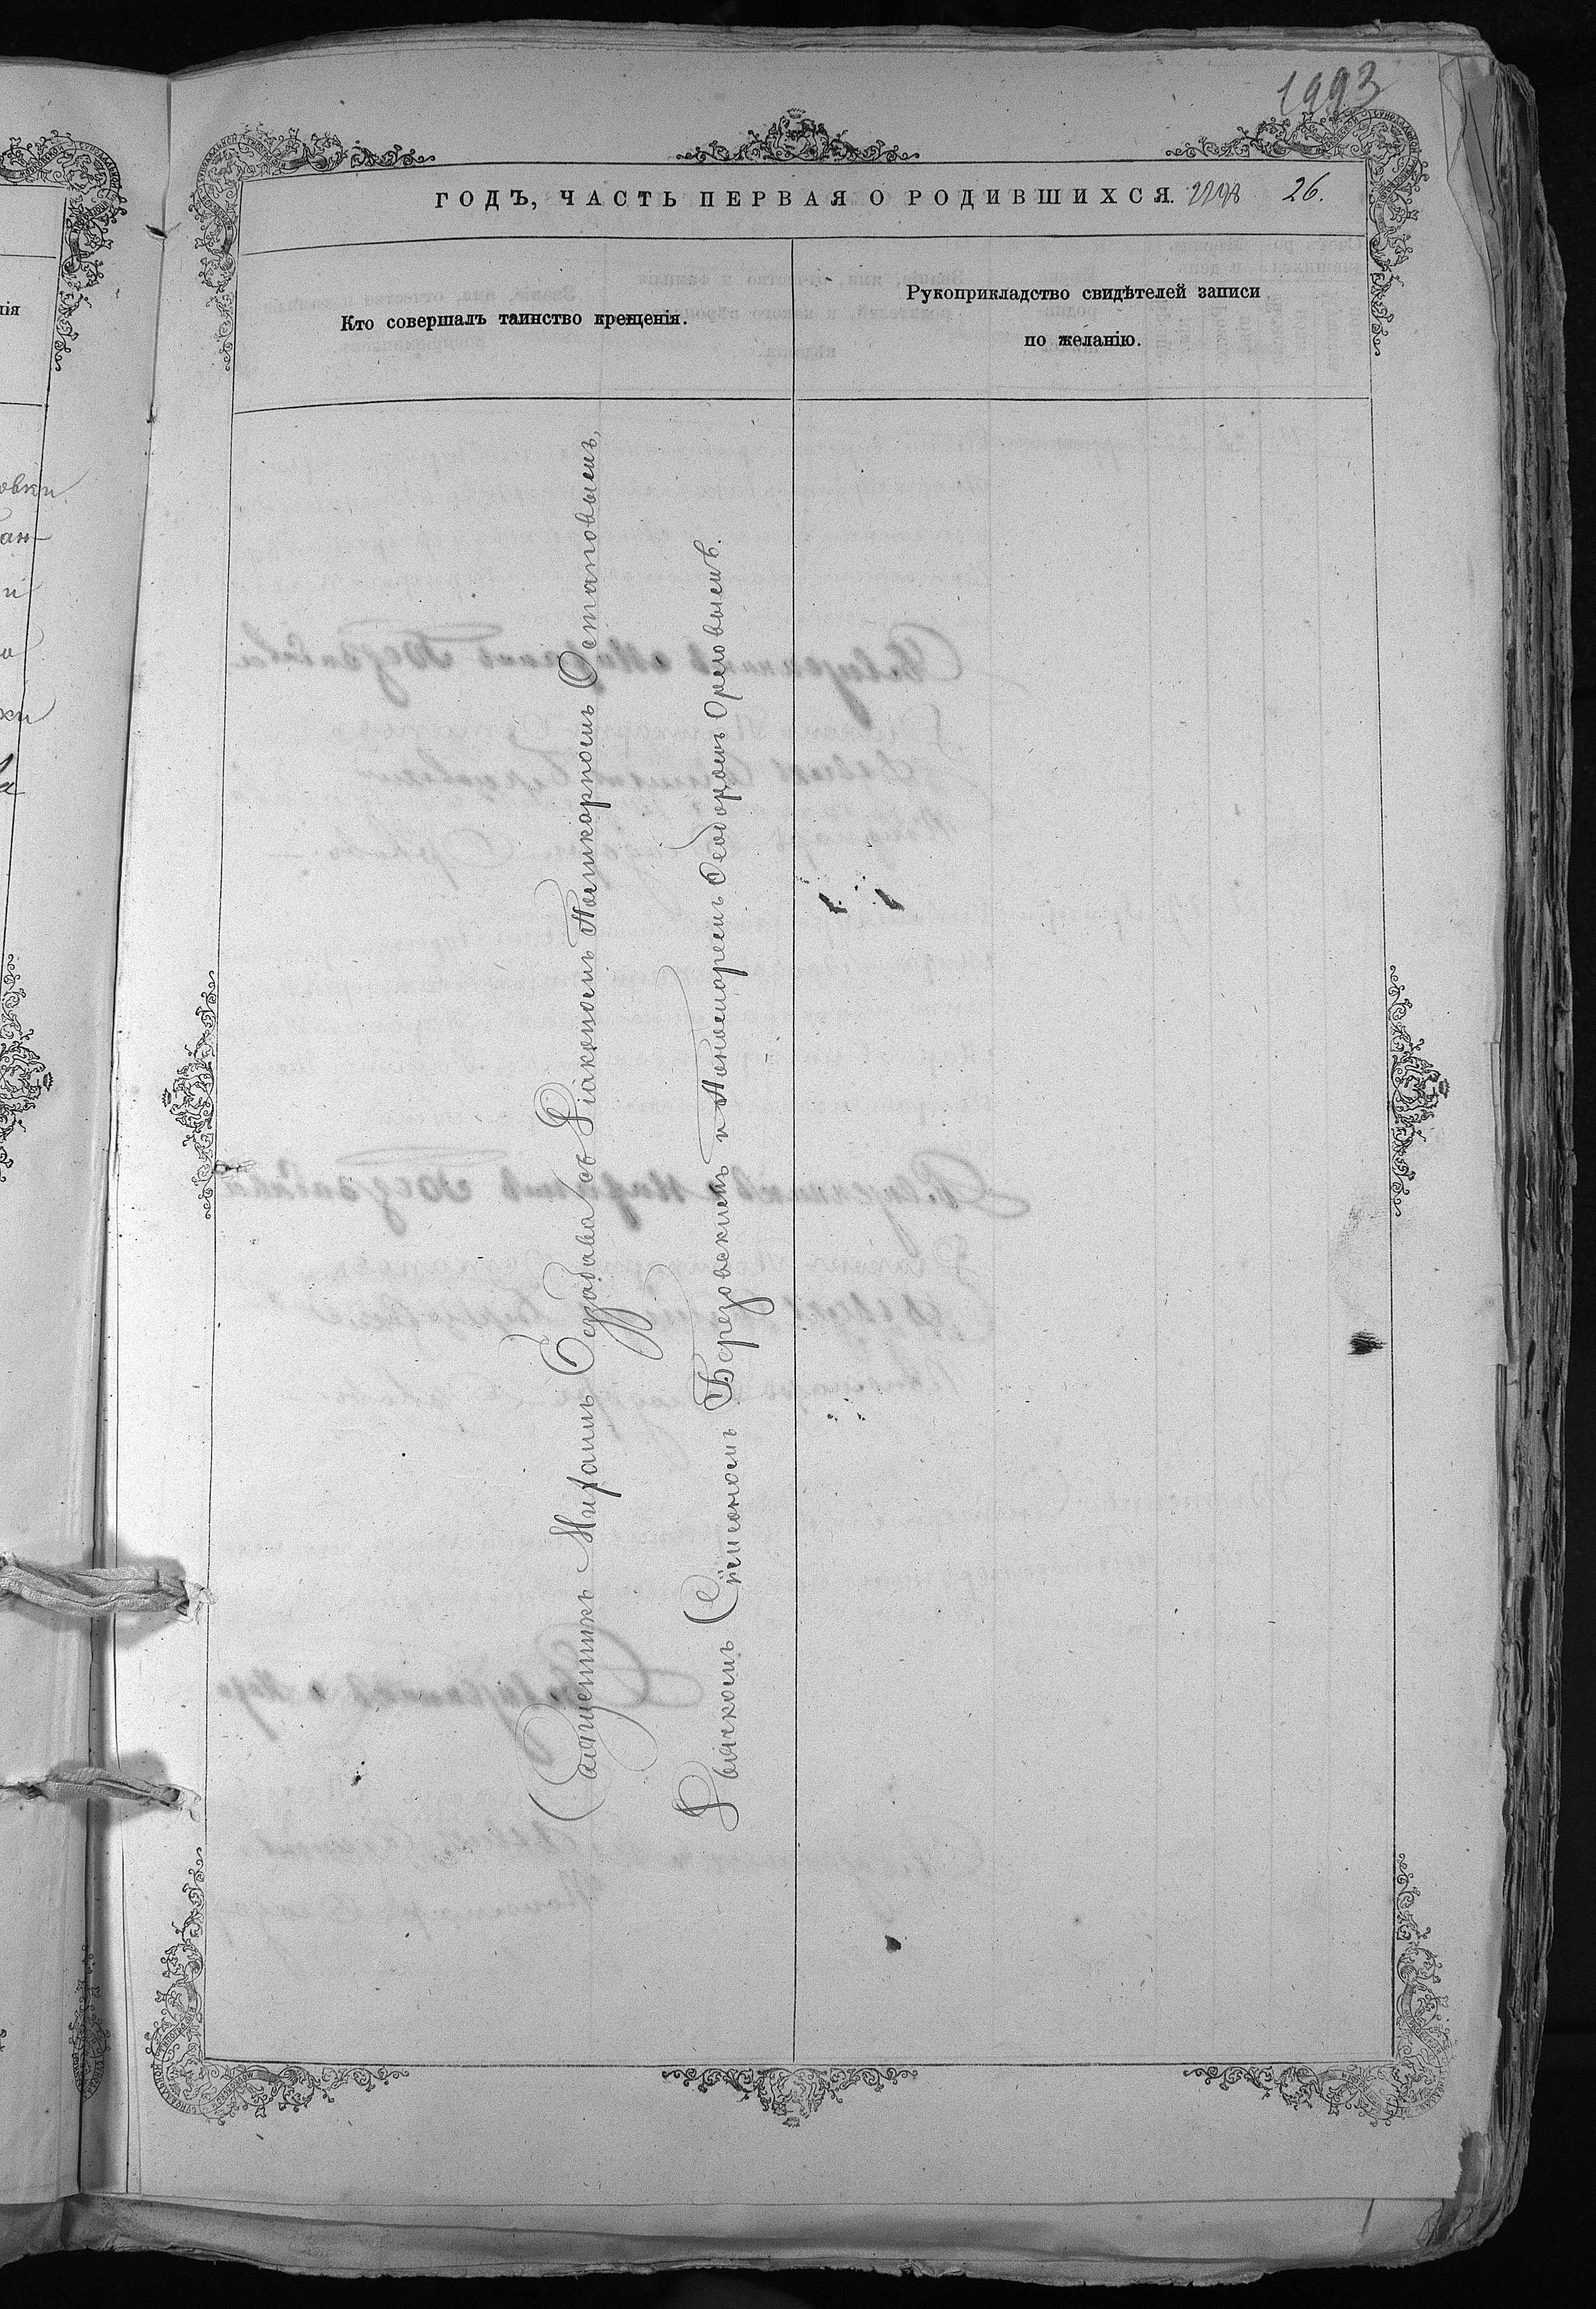 1993
ГОДЪ, ЧАСТЬ ПЕРВАЯ О РОДИВШИХСЯ. 26.
Кто совершалъ таинство крещенія.
Рукоприкладство свидѣтелей записи
по желанію.
Священникъ Михаилъ Беззабава съ Діакономъ Поликарпомъ Остаповымъ,
Дьячкомъ Сѵмеономъ Березовскимъ и Пономаремъ Ѳеодоромъ Орловымъ.